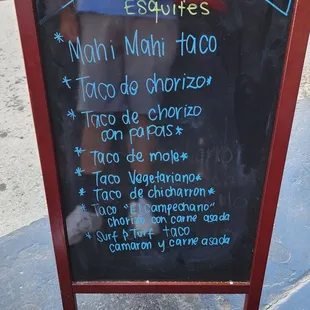 Esquites
* Mahi Mahi taco
* Taco de chorizo *
* Taco de chorizo
con papas *
* Taco de mole *
* Taco Vegetariano *
* Taco de chicharron *
* Taco "El campechano"
chorizo con carne asada
* Surf & Turf taco
camaron y carne asada